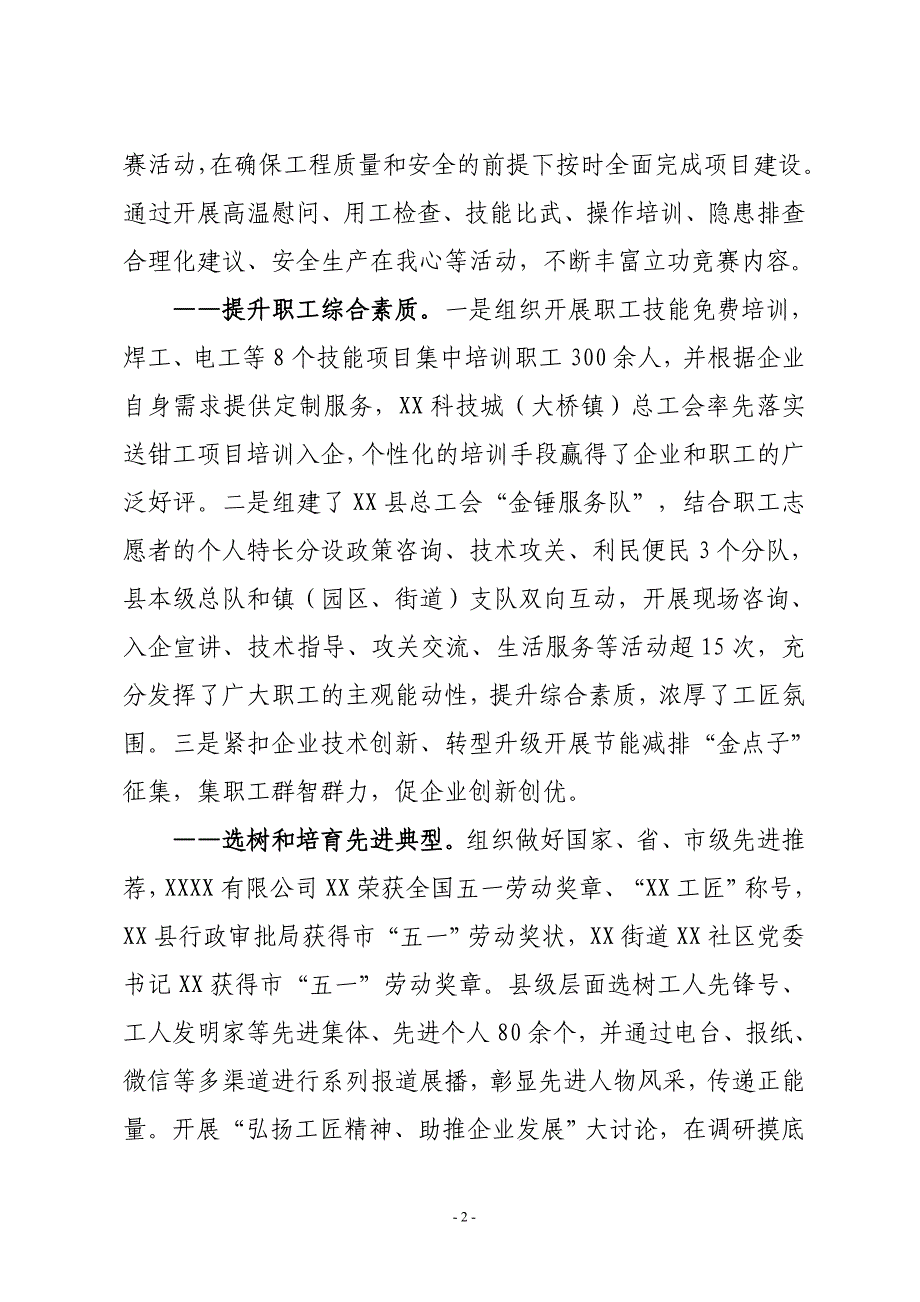 赛活动,在确保工程质量和安全的前提下按时全面完成项目建设。
通过开展高温慰问、用工检查、技能比武、操作培训、隐患排查
合理化建议、安全生产在我心等活动，不断丰富立功竞赛内容。
——提升职工综合素质。一是组织开展职工技能免费培训，
焊工、电工等 8 个技能项目集中培训职工 300 余人，并根据企业
自身需求提供定制服务，XX 科技城（大桥镇）总工会率先落实
送钳工项目培训入企,个性化的培训手段赢得了企业和职工的广
泛好评。二是组建了 XX 县总工会“金锤服务队”，结合职工志
愿者的个人特长分设政策咨询、技术攻关、利民便民 3 个分队，
县本级总队和镇（园区、街道）支队双向互动，开展现场咨询、
入企宣讲、技术指导、攻关交流、生活服务等活动超 15 次，充
分发挥了广大职工的主观能动性，提升综合素质，浓厚了工匠氛
围。三是紧扣企业技术创新、转型升级开展节能减排“金点子”
征集，集职工群智群力，促企业创新创优。
——选树和培育先进典型。组织做好国家、省、市级先进推
荐，XXXX 有限公司 XX 荣获全国五一劳动奖章、“XX 工匠”称号，
XX 县行政审批局获得市“五一”劳动奖状，XX 街道 XX 社区党委
书记 XX 获得市“五一”劳动奖章。县级层面选树工人先锋号、
工人发明家等先进集体、先进个人 80 余个，并通过电台、报纸、
微信等多渠道进行系列报道展播，彰显先进人物风采，传递正能
量。开展“弘扬工匠精神、助推企业发展”大讨论，在调研摸底
- 2 -